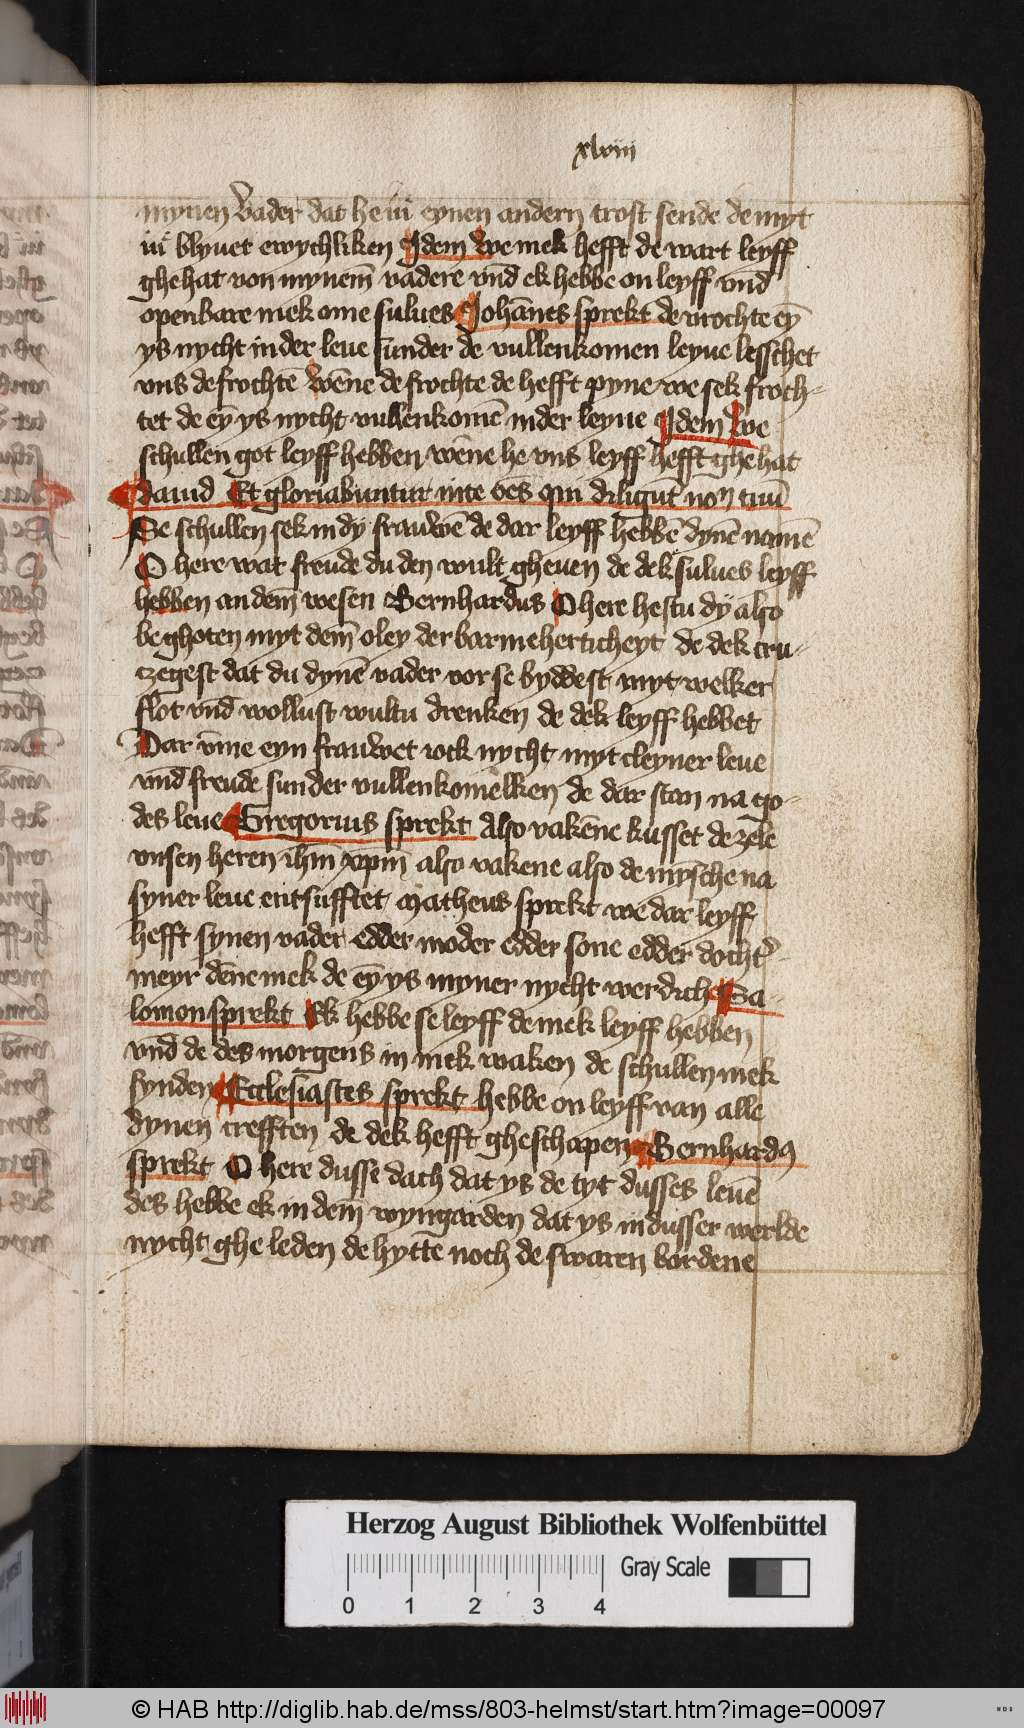 xlviij
mynen vader dat he iu̇ eynen andern trost sende de myt
iu̇ blyuet ewychliken Idem We mek hefft de wart leyff
ghehat von mynem̄ vadere vnd̄ ek hebbe on leyff vnd̄
openbare mek ome sulues Johānes sprekt de vrochte ey̅
ys nycht in der leue sunder de vullenkomen leyue lesschet
vns de frochtē Wēne de frochte de hefft pyne we sek froch-
tet de ey̅ ys nycht vullenkomē in der leyue Idem We
schullen got leyff hebben wēne he vns leyff hefft ghehat
dauid Et gloriabuntur in te o̅es qui diligūt nom̄ tuū
Se schullen sek in dy frauwē de dar leyff hebbē dynē namē
O here wat freude du den wult gheuen de dek sulues leyff
hebben an dem̄ wesen Bernhardus O here bestu dy also
beghoten myt dem̄ oley der barmeherticheyt de dek cru-
czegest dat du dynē vader vor se byddest myt welker
flot vnd̄ wollust wultu drenken de dek leyff hebbet
Dar v̄me eyn frauwet iock nycht myt cleyner leue
vnd̄ freude sunder vullenkomelken de dar stan na go-
des leue Gregorius sprekt Also vakēne kusset de zele
vnsen heren ihm̄ xpm̄ also vakene also de mȳsche na
syner leue entsufftet Matheus sprekt we dar leyff
hefft synen vader edder moder edder sone edder docht̉
meyr dēne mek de ey̅ ys myner nycht werdich Sa-
lomon sprekt Ek hebbe se leyff de mek leyff hebben
vnd̄ de des morgens in mek waken de schullen mek
fynden Ecclesiastes sprekt hebbe on leyff van alle
dynen crefften de dek hefft gheschapen Bernhardꝰ
sprekt O here dusse dach dat ys de tyt dusses leuē
des hebbe ek in dem̄ wyngarden dat ys in dusser werlde
nycht ghe leden de hyttē noch de swaren bordene
Herzog August Bibliothek Wolfenbüttel
Gray Scale
0 1 2 3 4
© HAB http://diglib.hab.de/mss/803-helmst/start.htm?image=00097